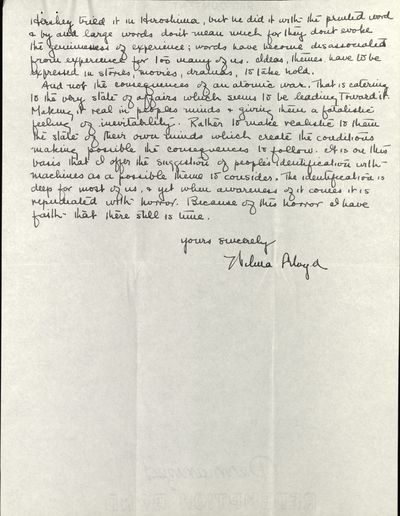 Hershey tried it in Hiroshima, but he did it with the printed word
& by and large words don't mean much for they don't evoke
the genuineness of experience; words have become disassociated
from experience for too many of us. Ideas, themes have to be
expressed in stories, movies, dramas, to take hold.
And not the consequences of an atomic war. That is catering
to the very state of affairs which seems to be leading toward it.
Making it real in peoples minds & giving them a fatalistic
feeling of inevitability. Rather to make realistic to them
the state of their own minds which create the conditions
making possible the consequences to follow. It is on this
basis that I offer the suggestion of people's identification with
machines as a possible theme to consider. The identification is
deep for most of us, & yet when awareness of it comes it is
repudiated with horror. Because of this horror I have
faith that there still is time.
Yours sincerely
Wilma Lloyd